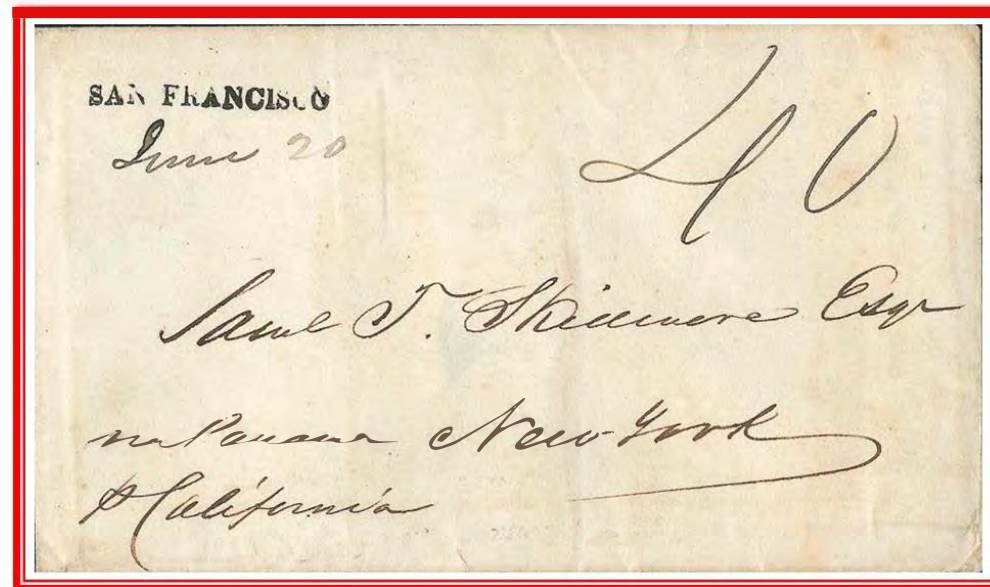 SAN FRANCISCO
June 20
40
Saml T. Skidmore Esqr
via Panama New-York
p California